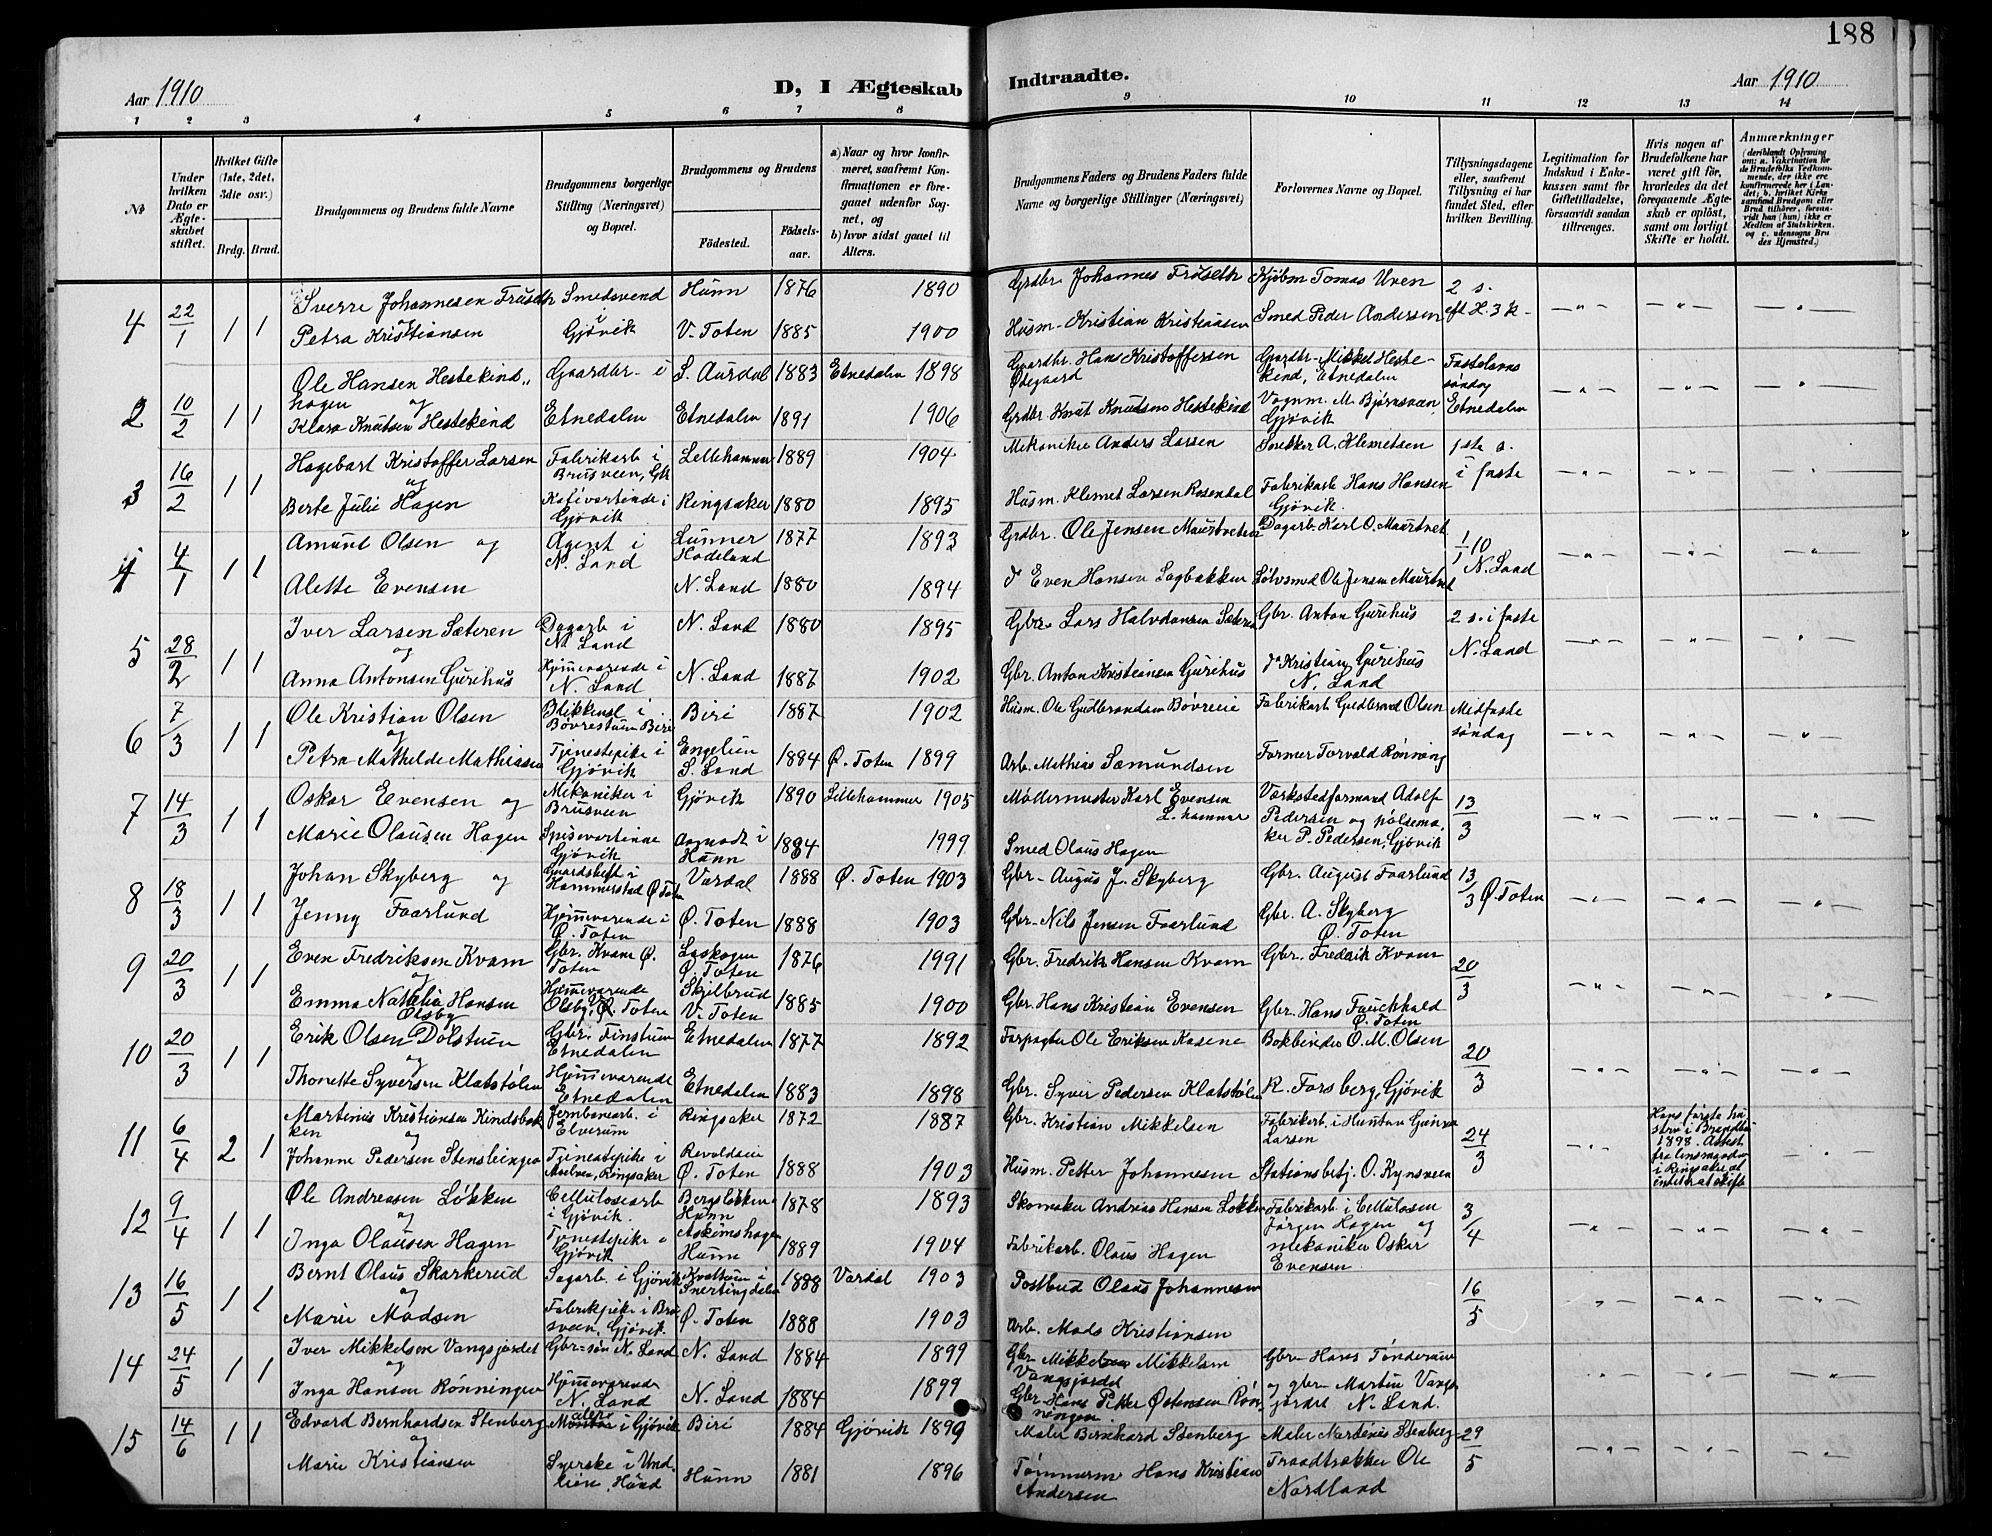 188
Aar 1910
D, I Ægteskab Indtraadte.
Aar 1910
1 2 3 4 5 6 7 8 9 10 11 12 13 14
No
Under hvilken Dato er Ægteskabet stiftet.
Hvilket Gifte (1ste, 2det, 3die osv.)
Brdg. Brud.
Brudgommens og Brudens fulde Navne
Brudgommens borgerlige Stilling (Næringsvei) og Bopæl.
Brudgommens og Brudens
Födested.
Födselsaar.
a) Naar og hvor konfirmeret, saafremt Konfirmationen er foregaaet udenfor Sognet, og
b) hvor sidst gaaet til Alters.
Brudgommens Faders og Brudens Faders fulde Navne og borgerlige Stillinger (Næringsvei)
Forlovernes Navne og Bopæl.
Tillysningsdagene eller, saafremt Tillysning ei har fundet Sted, efter hvilken Bevilling.
Legitimation for Indskud i Enkekassen samt for Giftetilladelse, forsaavidt saadan tiltrænges.
Hvis nogen af Brudefolkene har været gift för, hvorledes da det foregaaende Ægteskab er oplöst, samt om lovligt Skifte er holdt.
Anmærkninger (deriblandt Oplysning om: a. Vakcination for de Brudefolks Vedkommende, der ikke ere konfirmerede her i Landet; b. hvilket Kirkesamfund Brudgom eller Brud tilhörer, forsaavidt han (hun) ikke er Medlem af Statskirken, og c. udensogns Brudes Hjemsted.)
4 22/1 1 1 Sverre Johannesen Fruseth Smedsvend i Gjøvik Hunn 1876 1890 Grdbr Johannes Fröseth Kjöbm Tomas Uven 2 s. eft H. 3 k
Petra Kristiansen V. Toten 1885 1900 Husm. Kristian Kristiansen Smed Peder Andersen
2 10/2 1 1 Ole Hansen Hestekindhagen og Gaardbr. i Etnedalen S. Aurdal 1883 Etnedalen 1898 Gaardbr. Hans Kristoffersen Ødegaard Gaardbr. Mikkel Hestekind, Etnedalen Fastelavns söndag Etnedalen
Klara Knutsen Hestekind Etnedalen 1891 1906 Grdbr Knut Knutsen Hestekind Vognm. M. Björnsveen, Gjövik
3 16/2 1 1 Hagebart Kristoffer Larsen og Fabrikarb i Brusveen, Gk Lillehammer 1889 1904 Mekaniker Anders Larsen Snekker A. Klemetsen 1ste s. i faste
Berte Julie Hagen Kafévertinde i Gjövik Ringsaker 1880 1895 Husm. Klemet Larsen Rosendal Fabrikarb Hans Hansen Gjövik.
4 4/1 1 1 Amunt Olsen og Agent i N. Land Lunner Hadeland 1877 1893 Grdbr. Ole Jensen Maurtveten Dagarb Karl O. Maurtvet 1/1 10 N. Land
Alette Evensen N. Land 1880 1894 do Even Hansen Sagbakken Sölvsmed Ole Jensen Maurtvet
5 28/2 1 1 Iver Larsen Sæteren og Dagarb i N. Land N. Land 1880 1895 Gbr Lars Halvdansen Sæteren Gbr. Anton Gurihus 2 s. i faste N. Land
Anna Antonsen Gurihus Hjemmeværende i N. Land N. Land 1887 1902 Gbr. Anton Kristiansen Gurihus do Kristian Gurihus N. Land
6 7/3 1 1 Ole Kristian Olsen og Blikkensl i Bövrestuen Biri Biri 1887 1902 Husm. Ole Gudbrandsen Bövreeie Fabrikarb Gudbrand Olsen Midfaste söndag
Petra Mathilde Mathiasen Tjenestepike i Gjövik Engelien S. Land 1884 Ø. Toten 1899 Arb. Mathias Samundsen Former Torvald Rönning
7 14/3 1 1 Oskar Evensen og Mekaniker i Brusveen Gjövik 1890 Lillehammer 1905 Möllermester Karl Evensen L.hammer Værkstedformand Adolf Pedersen og pölsemaker P. Pedersen, Gjövik 13/3
Marie Olausen Hagen Spisevertinne Gjövik Aamodt i Hunn 1884 1999 Smed Olaus Hagen
8 18/3 1 1 Johan Skyberg og Gaardsbest i Hammerstad Ø Toten Vardal 1888 Ø. Toten 1903 Gbr. Augus J. Skyberg Gbr. August Faarlund 13/3 Ø. Toten
Jenny Faarlund Hjemmeværende i Ø. Toten Ø. Toten 1888 1903 Gbr. Nils Jensen Faarlund Gbr. A. Skyberg Ø. Toten
9 20/3 1 1 Even Fredriksen Kvam og Gbr. Kvam Ø. Toten Laskogen Ø. Toten 1876 1991 Gbr. Fredrik Hansen Kvam Gbr. Fredrik Kvam 20/3
Emma Natalia Hansen Olsby Hjemmeværende Olsby, V. Toten Skjelbrud V. Toten 1885 1900 Gbr. Hans Kristian Evensen Gbr. Hans Fauchhald Ø. Toten
10 20/3 1 1 Erik Olsen Dölstuen og Gbr. Finstuen Etnedalen Etnedalen 1877 1892 Forpagter Ole Eriksen Kasene Bokbinder O. M. Olsen 20/3
Thonette Syversen Klatstölen Hjemmeværende Etnedalen Etnedalen 1883 1898 Gbr. Syver Pedersen Klatstölen R. Forsberg, Gjövik
11 6/4 2 1 Martenius Kristiansen Kindsbakken og Jernbanearb. i Elverum Ringsaker 1872 1887 Gbr. Kristian Mikkelsen Fabrikarb. i Hunton Gunnar Larsen 24/3 Hans förste hustru i 1898. Attest fra lensmanden i Ringsaker at intet at skifte
Johanne Pedersen Stensleingen Tjenestepike i Moelven, Ringsaker Ø. Toten 1888 1903 Husm. Petter Johannesen Stationsbetj. O. Kynsveen
12 9/4 1 1 Ole Andreasen Lökken og Cellulosearb i Gjövik. Bergslökken Hunn 1878 1893 Skomaker Andreas Hansen Lökken Fabrikarb i Cellulosen Jörgen Hagen og mekaniker Oskar Evensen 3/4
Inga Olausen Hagen Tjenestepike i Gjövik Askimshagen Hunn 1889 1904 Fabrikarb. Olaus Hagen
13 16/5 1 1 Bernt Olaus Skarkerud og Sagarb. i Gjövik Kvattum i Snertingdalen 1888 Vardal 1903 Postbud Olaus Johannesen 16/5
Marie Madsen Fabrikpike i Brusveen, Gjövik. Ø. Toten 1888 1903 Arb. Mads Kristiansen
14 24/5 1 1 Iver Mikkelsen Vangsjordet og Gbr-sön N. Land N. Land 1884 1899 Gbr Mikkelsen Mikkelsen Vangsjordet Gbr. Hans Tönderum og gbr Martin Vangsjordet N. Land.
Inga Hansen Rönningen Hjemmeværende N. Land N. Land 1884 1899 Gbr. Hans Petter Östensen Rönningen.
15 14/6 1 1 Edvard Bernhardsen Stenberg og Maler i Gjövik Biri 1884 Gjövik 1899 Maler Bernhard Stenberg Maler Martinius Stenberg 29/5
Marie Kristiansen Syerske i Undlien, Hunn Hunn 1881 1896 Tömmerm Hans Kristian Andersen Traadtrækker Ole Nordland